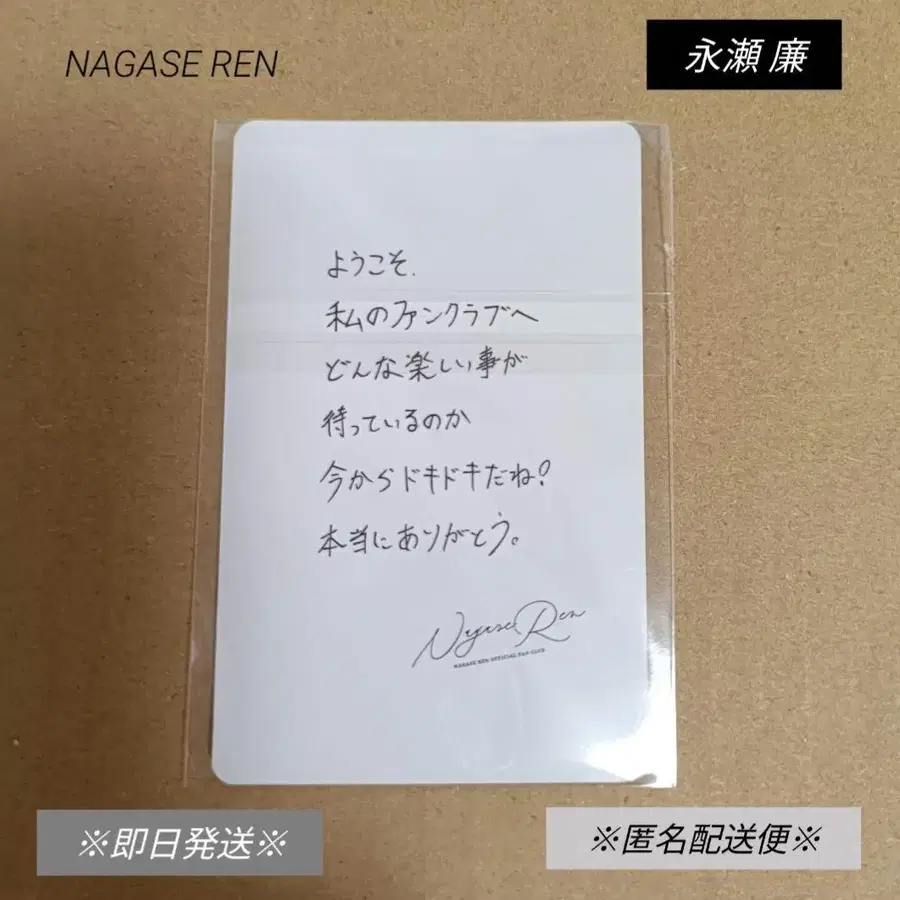 NAGASE REN
永瀬 廉
ようこそ.
私のファンクラブへ
どんな楽しい事が
待っているのか
今からドキドキだね!
本当にありがとう。
Nagase Ren
NAGASE REN OFFICIAL FAN CLUB
※即日発送※
※匿名配送便※